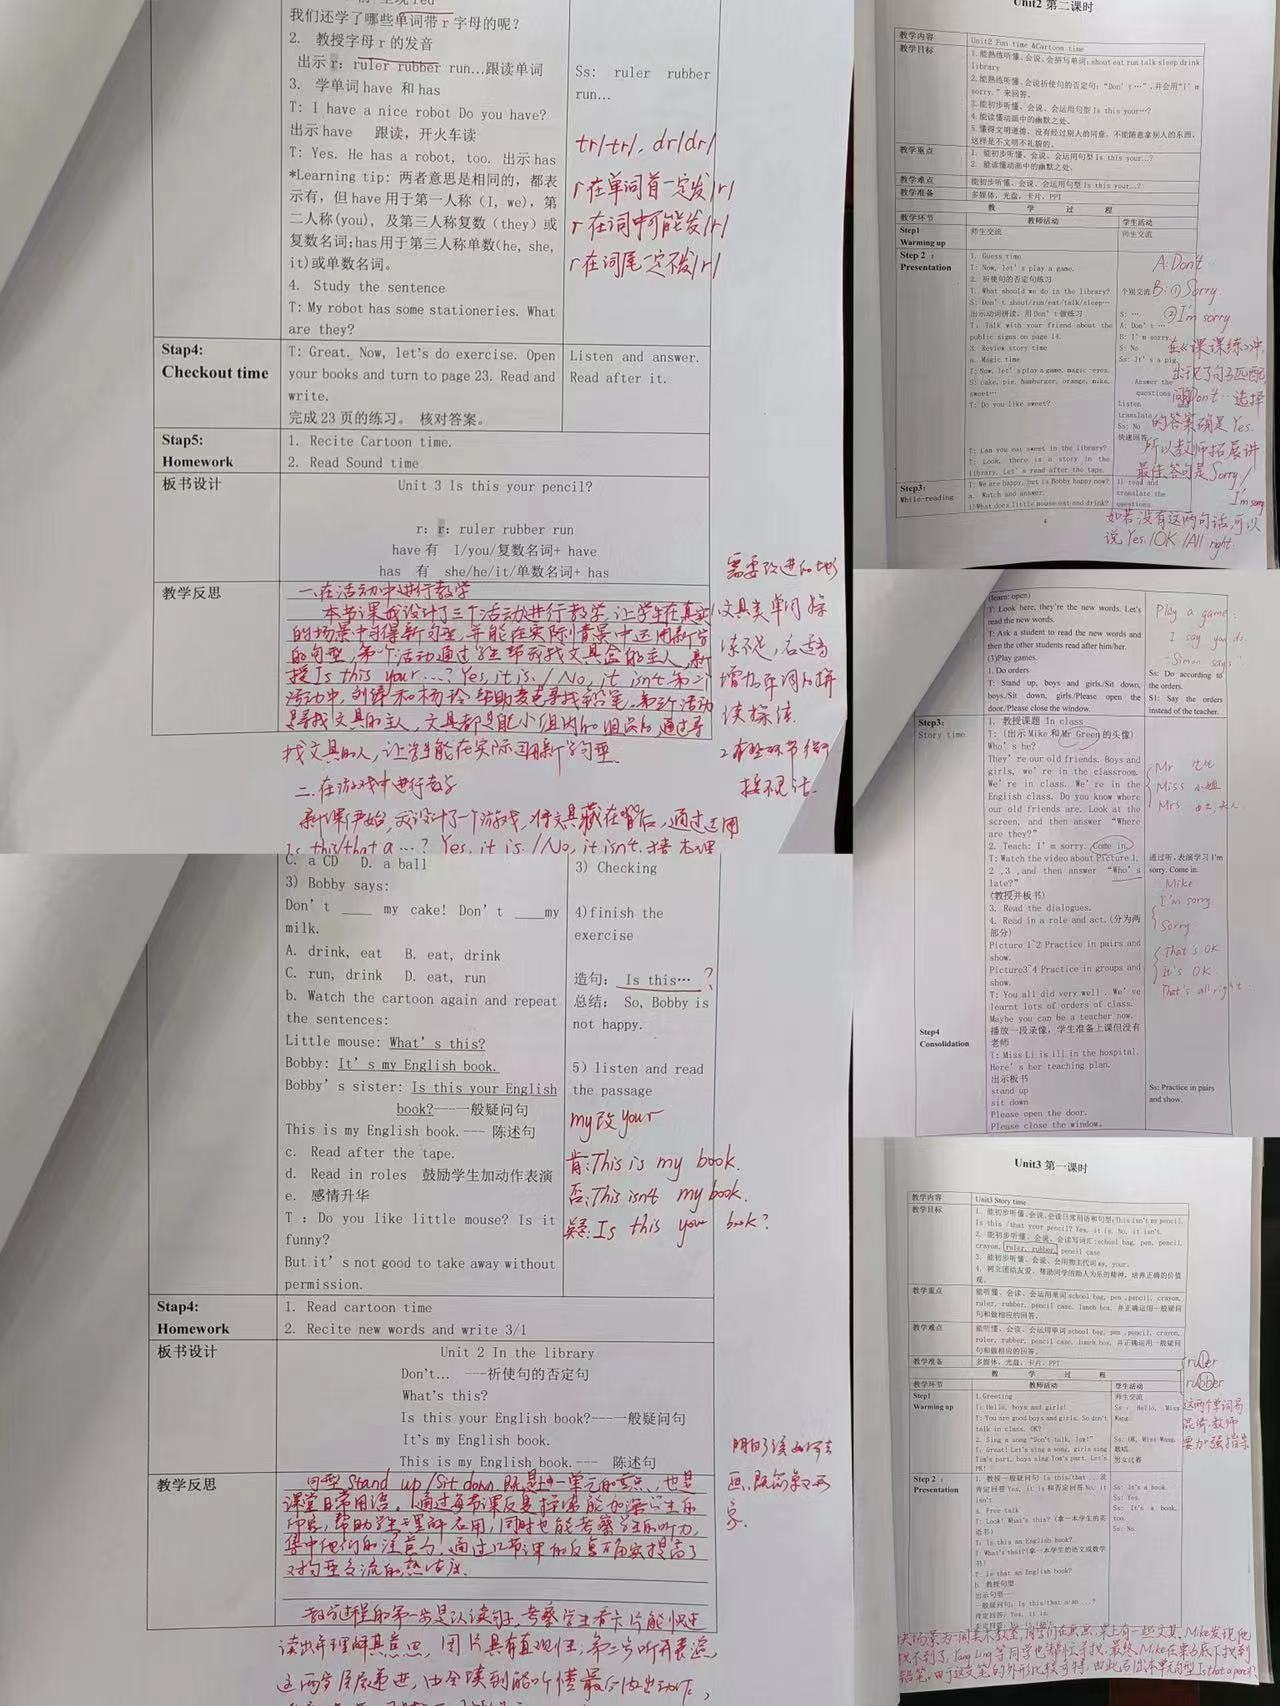 我们还学了哪些单词带 r 字母的呢?
2. 教授字母 r 的发音
出示 r: ruler rubber run...跟读单词
3. 学单词 have 和 has
T: I have a nice robot Do you have?
出示 have 跟读,开火车读
T: Yes. He has a robot, too. 出示 has
*Learning tip: 两者意思是相同的,都表
示有,但 have 用于第一人称(I, we),第
二人称(you),及第三人称复数(they)或
复数名词;has 用于第三人称单数(he, she,
it)或单数名词。
4. Study the sentence
T: My robot has some stationeries. What
are they?
Ss: ruler rubber
run...
tr/tr/, dr/dr/
r在单词首一定发/r/
r在词中可能发/r/
r在词尾一定不发/r/
Stap4:
Checkout time
T: Great. Now, let's do exercise. Open
your books and turn to page 23. Read and
write.
完成 23 页的练习。 核对答案。
Listen and answer.
Read after it.
Stap5:
Homework
1. Recite Cartoon time.
2. Read Sound time
板书设计
Unit 3 Is this your pencil?
r: r: ruler rubber run
have 有 I/you/复数名词+ have
has 有 she/he/it/单数名词+ has
教学反思
一.在活动中进行教学
本节课我设计了三个活动进行教学,让学生在真实
的场景中习得新句型,并能在实际情景中运用新学
的句型,第一个活动通过学生帮我找文具盒的主人,新
授Is this your...? Yes, it is. / No, it isn't. 第二个
活动中,刘涛和杨玲帮助麦克寻找铅笔。第三个活动
是寻找文具的主人,文具都是能小组内的组员的,通过寻
找文具的人,让学生能在实际运用新学句型
二.在游戏中进行教学
新课伊始,我设计了一个游戏,将文具藏在背后,通过运用
Is this/that a ...? Yes, it is. / No, it isn't.
需要改进的地
1.文具类单词操
练不足,应适当
增加单词的拼
读操练.
C. a CD D. a ball
3) Bobby says:
Don't ____ my cake! Don't ____my
milk.
A. drink, eat B. eat, drink
C. run, drink D. eat, run
b. Watch the cartoon again and repeat
the sentences:
Little mouse: What's this?
Bobby: It's my English book.
Bobby's sister: Is this your English
book?---一般疑问句
This is my English book.--- 陈述句
c. Read after the tape.
d. Read in roles 鼓励学生加动作表演
e. 感情升华
T : Do you like little mouse? Is it
funny?
But it's not good to take away without
permission.
3) Checking
4)finish the
exercise
造句: Is this… ?
总结: So, Bobby is
not happy.
5) listen and read
the passage
my改your
肯:This is my book.
否:This isn't my book.
疑:Is this your book?
Stap4:
Homework
1. Read cartoon time
2. Recite new words and write 3/1
板书设计
Unit 2 In the library
Don't... ---祈使句的否定句
What's this?
Is this your English book?---一般疑问句
It's my English book.
This is my English book.--- 陈述句
教学反思
句型Stand up/Sit down.既是上一单元的重点,也是
课堂日常用语。通过每节课反复操练能加深学生的
印象,帮助学生理解应用,同时也能考察学生的听力,
集中他们的注意力,通过几节课的反复
对句型交流的熟练度.
教学过程的第一步是认读句子,考察学生看卡片能快速
读出并理解其意思,图片具有直观性;第二步听并表演
Unit2 第二课时
教学内容
Unit2 Fun time &Cartoon time
教学目标
1.能熟练听懂、会说、会拼写单词:shout eat run talk sleep drink
library
2.能熟练听懂、会说祈使句的否定句:“Don't …”,并会用“I'm
sorry.”来回答。
3.能初步听懂、会说、会运用句型 Is this your…?
4.能读懂动画中的幽默之处。
5.懂得文明道德,没有经过别人的同意,不能随意拿别人的东西,
这样是不文明不礼貌的。
教学重点
1. 能初步听懂、会说、会运用句型 Is this your…?
2. 能读懂动画中的幽默之处。
教学难点
能初步听懂、会说、会运用句型 Is this your…?
教学准备
多媒体,光盘,卡片,PPT
教 学 过 程
教学环节 教师活动 学生活动
Step1
Warming up
师生交流
师生交流
Step 2 :
Presentation
1. Guess time
T: Now, let's play a game.
2. 祈使句的否定句练习
T: What should we do in the library?
S: Don't shout/run/eat/talk/sleep…
出示动词拼读,用 Don't 做练习
T: Talk with your friend about the
public signs on page 14.
3. Review story time
a. Magic time
T:Now, let's play a game. magic eyes.
S: cake, pie, hamburger, orange, mike,
sweet…
T: Do you like sweet?
T: Can you eat sweet in the library?
T: Look, there is a story in the
library. Let's read after the tape.
个别交流
S: …
A: Don't …
B: I'm sorry.
S: No
Ss: It's a pig.
Answer the
questions
Listen and
translate
Ss: No
快速回答
A: Don't …
B: ① Sorry.
② I'm sorry
在《课课练》中,
出现了句子匹配,
问句Don't…选择
的答案确是Yes.
所以教师拓展讲
最佳答句是Sorry/
I'm sorry
如若没有这两句话,可以
说Yes./OK/All right.
Step3:
While-reading
T: We are happy, but is Bobby happy now?
a. Watch and answer.
1)What does little mouse eat and drink?
1) read and
translate the
questions
4
(learn: open)
T: Look here, they're the new words. Let's
read the new words.
T: Ask a student to read the new words and
then the other students read after him/her.
(3)Play games.
1. Do orders
T: Stand up, boys and girls./Sit down,
boys./Sit down, girls/Please open the
door./Please close the window.
Play a game:
I say you do.
"Simon says"
Ss: Do according to
the orders.
S1: Say the orders
instead of the teacher.
Step3:
Story time
1. 教授课题 In class
T: (出示 Mike 和 Mr Green 的头像)
Who's he?
They're our old friends. Boys and
girls, we're in the classroom.
We're in class. We're in the
English class. Do you know where
our old friends are. Look at the
screen, and then answer “Where
are they?”
2. Teach: I'm sorry. Come in.
T: Watch the video about Picture 1,
2 ,3 ,and then answer “Who's
late?”
(教授并板书)
3. Read the dialogues.
4. Read in a role and act.(分为两
部分)
Picture 1~2 Practice in pairs and
show.
Picture3~4 Practice in groups and
show.
T: You all did very well . We've
learnt lots of orders of class.
Maybe you can be a teacher now.
Mr 先生
Miss 小姐
Mrs 女士,夫人
通过听,表演学习 I'm
sorry. Come in.
Mike
I'm sorry
Sorry
That's OK
It's OK.
That's all right.
Step4
Consolidation
播放一段录像,学生准备上课但没有
老师
T: Miss Li is ill in the hospital.
Here's her teaching plan.
出示板书
stand up
sit down
Please open the door.
Please close the window.
Ss: Practice in pairs
and show.
Unit3 第一课时
教学内容
Unit3 Story time
教学目标
1. 能初步听懂、会说、会读日常用语和句型:This isn't my pencil.
Is this /that your pencil? Yes, it is. No, it isn't.
2. 能初步听懂、会说、会读写词汇:school bag, pen, pencil,
crayon, ruler, rubber, pencil case
3. 能初步听懂、会说、会用物主代词 my, your.
4. 树立团结友爱、帮助同学的助人为乐的精神,培养正确的价值
观。
教学重点
能听懂、会读、会运用单词 school bag, pen ,pencil, crayon,
ruler, rubber, pencil case, lunch box, 并正确运用一般疑问
句和做相应的回答。
教学难点
能听懂、会读、会运用单词 school bag, pen ,pencil, crayon,
ruler, rubber, pencil case, lunch box, 并正确运用一般疑问
句和做相应的回答。
教学准备
多媒体,光盘,卡片,PPT
教 学 过 程
教学环节 教师活动 学生活动
Step1
Warming up
1.Greeting
T: Hello, boys and girls!
T: You are good boys and girls. So don't
talk in class, OK?
2. Sing a song “Don't talk, Tom!”
T: Great! Let's sing a song, girls sing
Tim's part, boys sing Tom's part. Let's
师生交流
Ss : Hello, Miss
Wang.
Ss: OK, Miss Wang.
歌唱.
男女比赛
ruler
rubber
这两个单词易
混淆,教师
要加强指导
Step 2 :
Presentation
1. 教授一般疑问句 Is this/that ...及
肯定回答 Yes, it is 和否定回答 No, it
isn't
a. Free talk
T: Look! What's this? (拿一本学生的英
语书)
T: Is this an English book?
T: What's that?(拿一本学生的语文或数学
书)
T: Is that an English book?
b. 教授句型
出示句型---
一般疑问句: Is this/that a/an ...?
肯定回答: Yes, it is.
Ss: It's a book.
Ss: Yes.
Ss: It's a book,
too.
Ss: No.